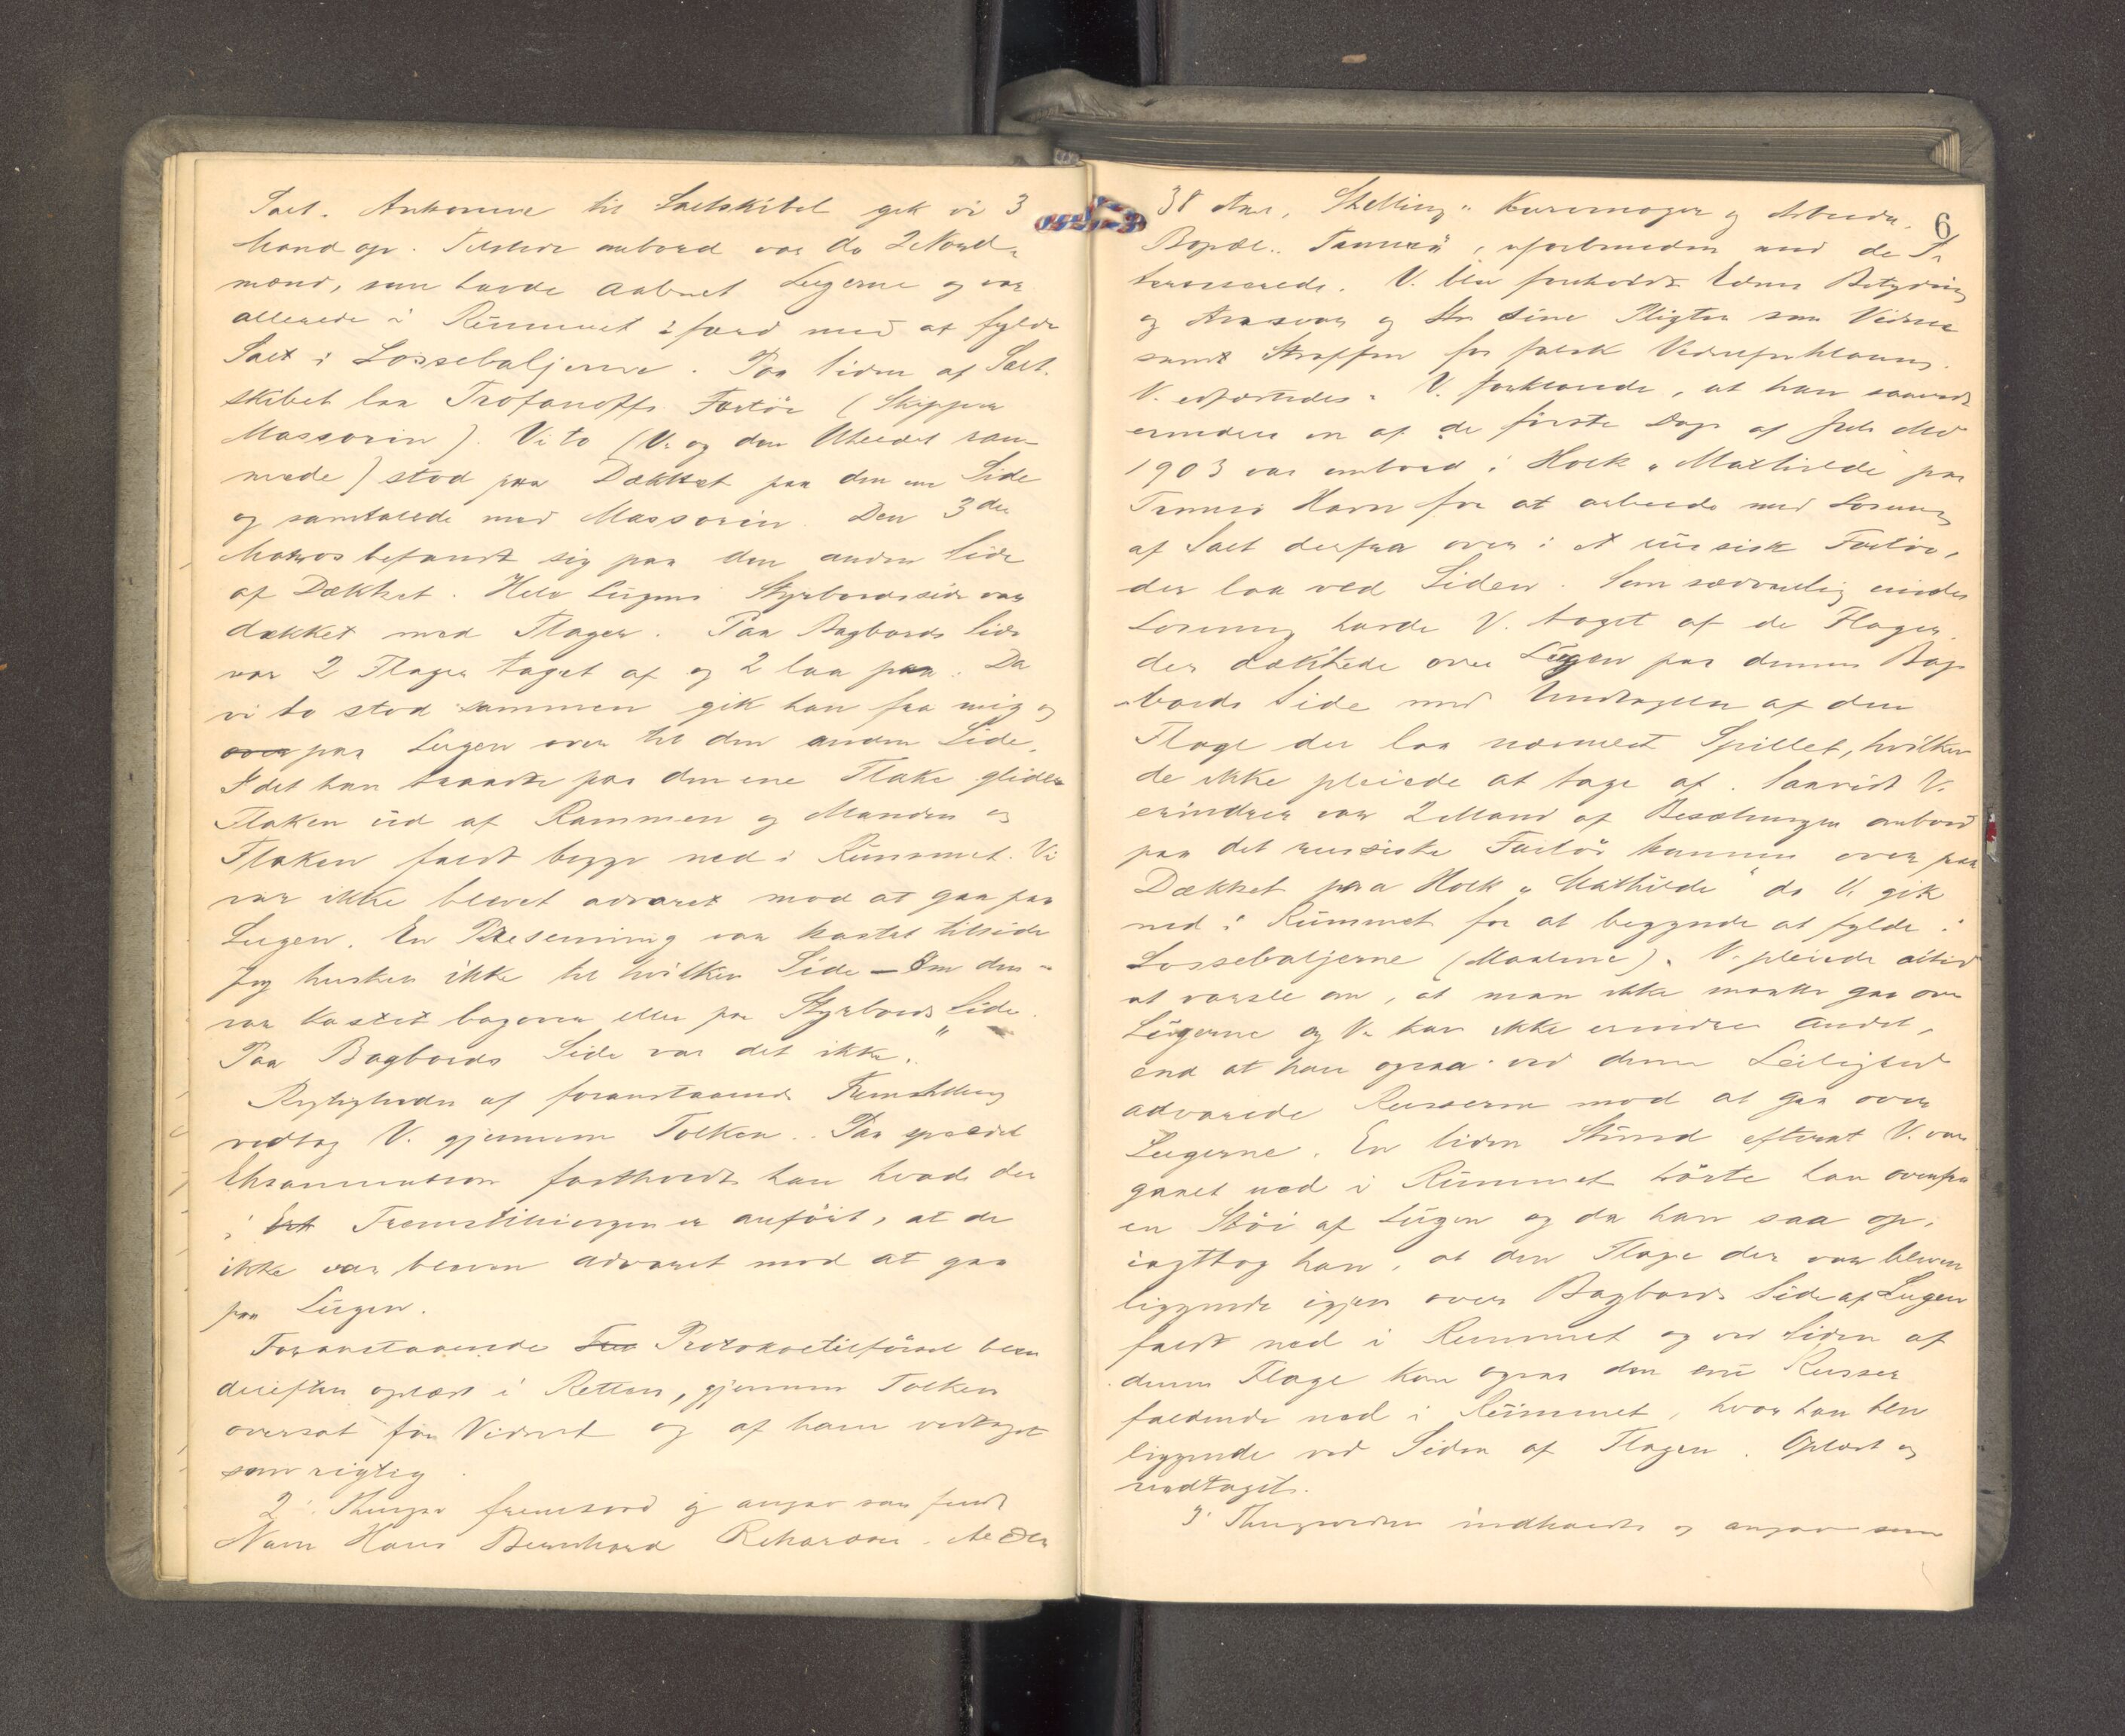 Salt. Ankomne til Saltskibet gik vi 3
Mand op. Tilstede ombord var da 2 Nord-
mænd, som havde aabnet Lugerne og var
allerede i Rummet ifærd med at fylde
Salt i Lossebaljerne. Paa Siden af Salt-
skibet laa Trofanoffs Fartöi (Skipper
Massorin). Vi to (V. og den Uheldet ram-
mede) stod paa Dækket paa den ene Side
og samtalede med Massorin. Den 3die
Matros befandt sig paa den anden Side
af Dækket. Hele Lugens Styrbordsside var
dækket med Flager. Paa Bagbords Side
var 2 Flager taget af og 2 laa paa. Da
vi to stod sammen gik han fra mig og
over paa Lugen over til den anden Side.
Idet han traadte paa den ene Flake glider
Flaken ud af Rammen og Manden og
Flaken faldt begge ned i Rummet. Vi
var ikke blevet advaret mod at gaa paa
Lugen. En Presenning var kastet tilside
Jeg husker ikke til hvilken Side – Om den
var kastet bagover eller paa Styrbords Side.
Paa Bagbords Side var det ikke."
Rigtigheden af foranstaaende Fremstilling
vedtog V. gjennem Tolken. Paa speciel
Examination fastholdt han hvad der
i Fremstillingen er anfört, at de
ikke var bleven advaret mod at gaa
paa Lugen.
Foranstaaende Protokoltilförsel blev
derefter oplæst i Retten, gjennem Tolken
oversat for Vidnet og af ham vedtaget
som rigtig.
2. Thinges fremstod og angav som fuldt
Navn Hans Bernhard Alder
6
38 Aar, Stilling: og Arbeider,
Bopæl: Tromsö, ubeslægtet med de In-
teresserede. V. blev foreholdt Edens Betydning
og Ansvar og sine Pligter som Vidne
samt Straffen for falsk Vidneforklaring.
V. edfæstedes. V. forklarede, at han saavidt
erindres en af de förste Dage af Juli Md
1903 var ombord i Hoek "Mathilde" paa
Tromsö Havn for at arbeide med Losning
af Salt derfra over i et russisk Fartöi,
der laa ved Siden. Som sædvanlig under
Losning havde V. taget af de Flager,
der dækkede over Lugen paa dennes Bag-
bords Side med Undtagelse af den
Flage der laa nærmest Spillet, hvilken
de ikke pleiede at tage af. Saavidt V.
erindrer var 2 Mand af Besætningen ombord
paa det russiske Fartöi kommen over paa
Dækket paa Hoek "Mathilde" da V. gik
ned i Rummet for at begynde at fylde i
Lossebaljerne (Maalene). V. pleiede altid
at varsle om, at man ikke maatte gaa over
Lugerne og V. kan ikke erindre andet,
end at han ogsaa ved denne Leilighed
advarede Russerne mod at gaa over
Lugerne. En liden Stund efterat V. var
gaaet ned i Rummet hörte han ovenfra
en Stöi af Lugen og da han saa op,
iagttog han, at den Flage der var bleven
liggende igjen over Bagbords Side af Lugen
faldt ned i Rummet og ved Siden af
denne Flage kom ogsaa den ene Russer
faldende ned i Rummet, hvor han blev
liggende ved Siden af Flagen. Oplæst og
vedtaget.
3. indkaldt og angav som